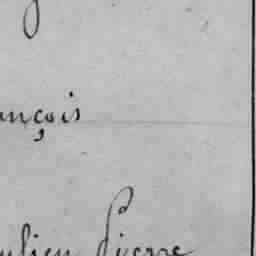 ançois
ulien Pierre